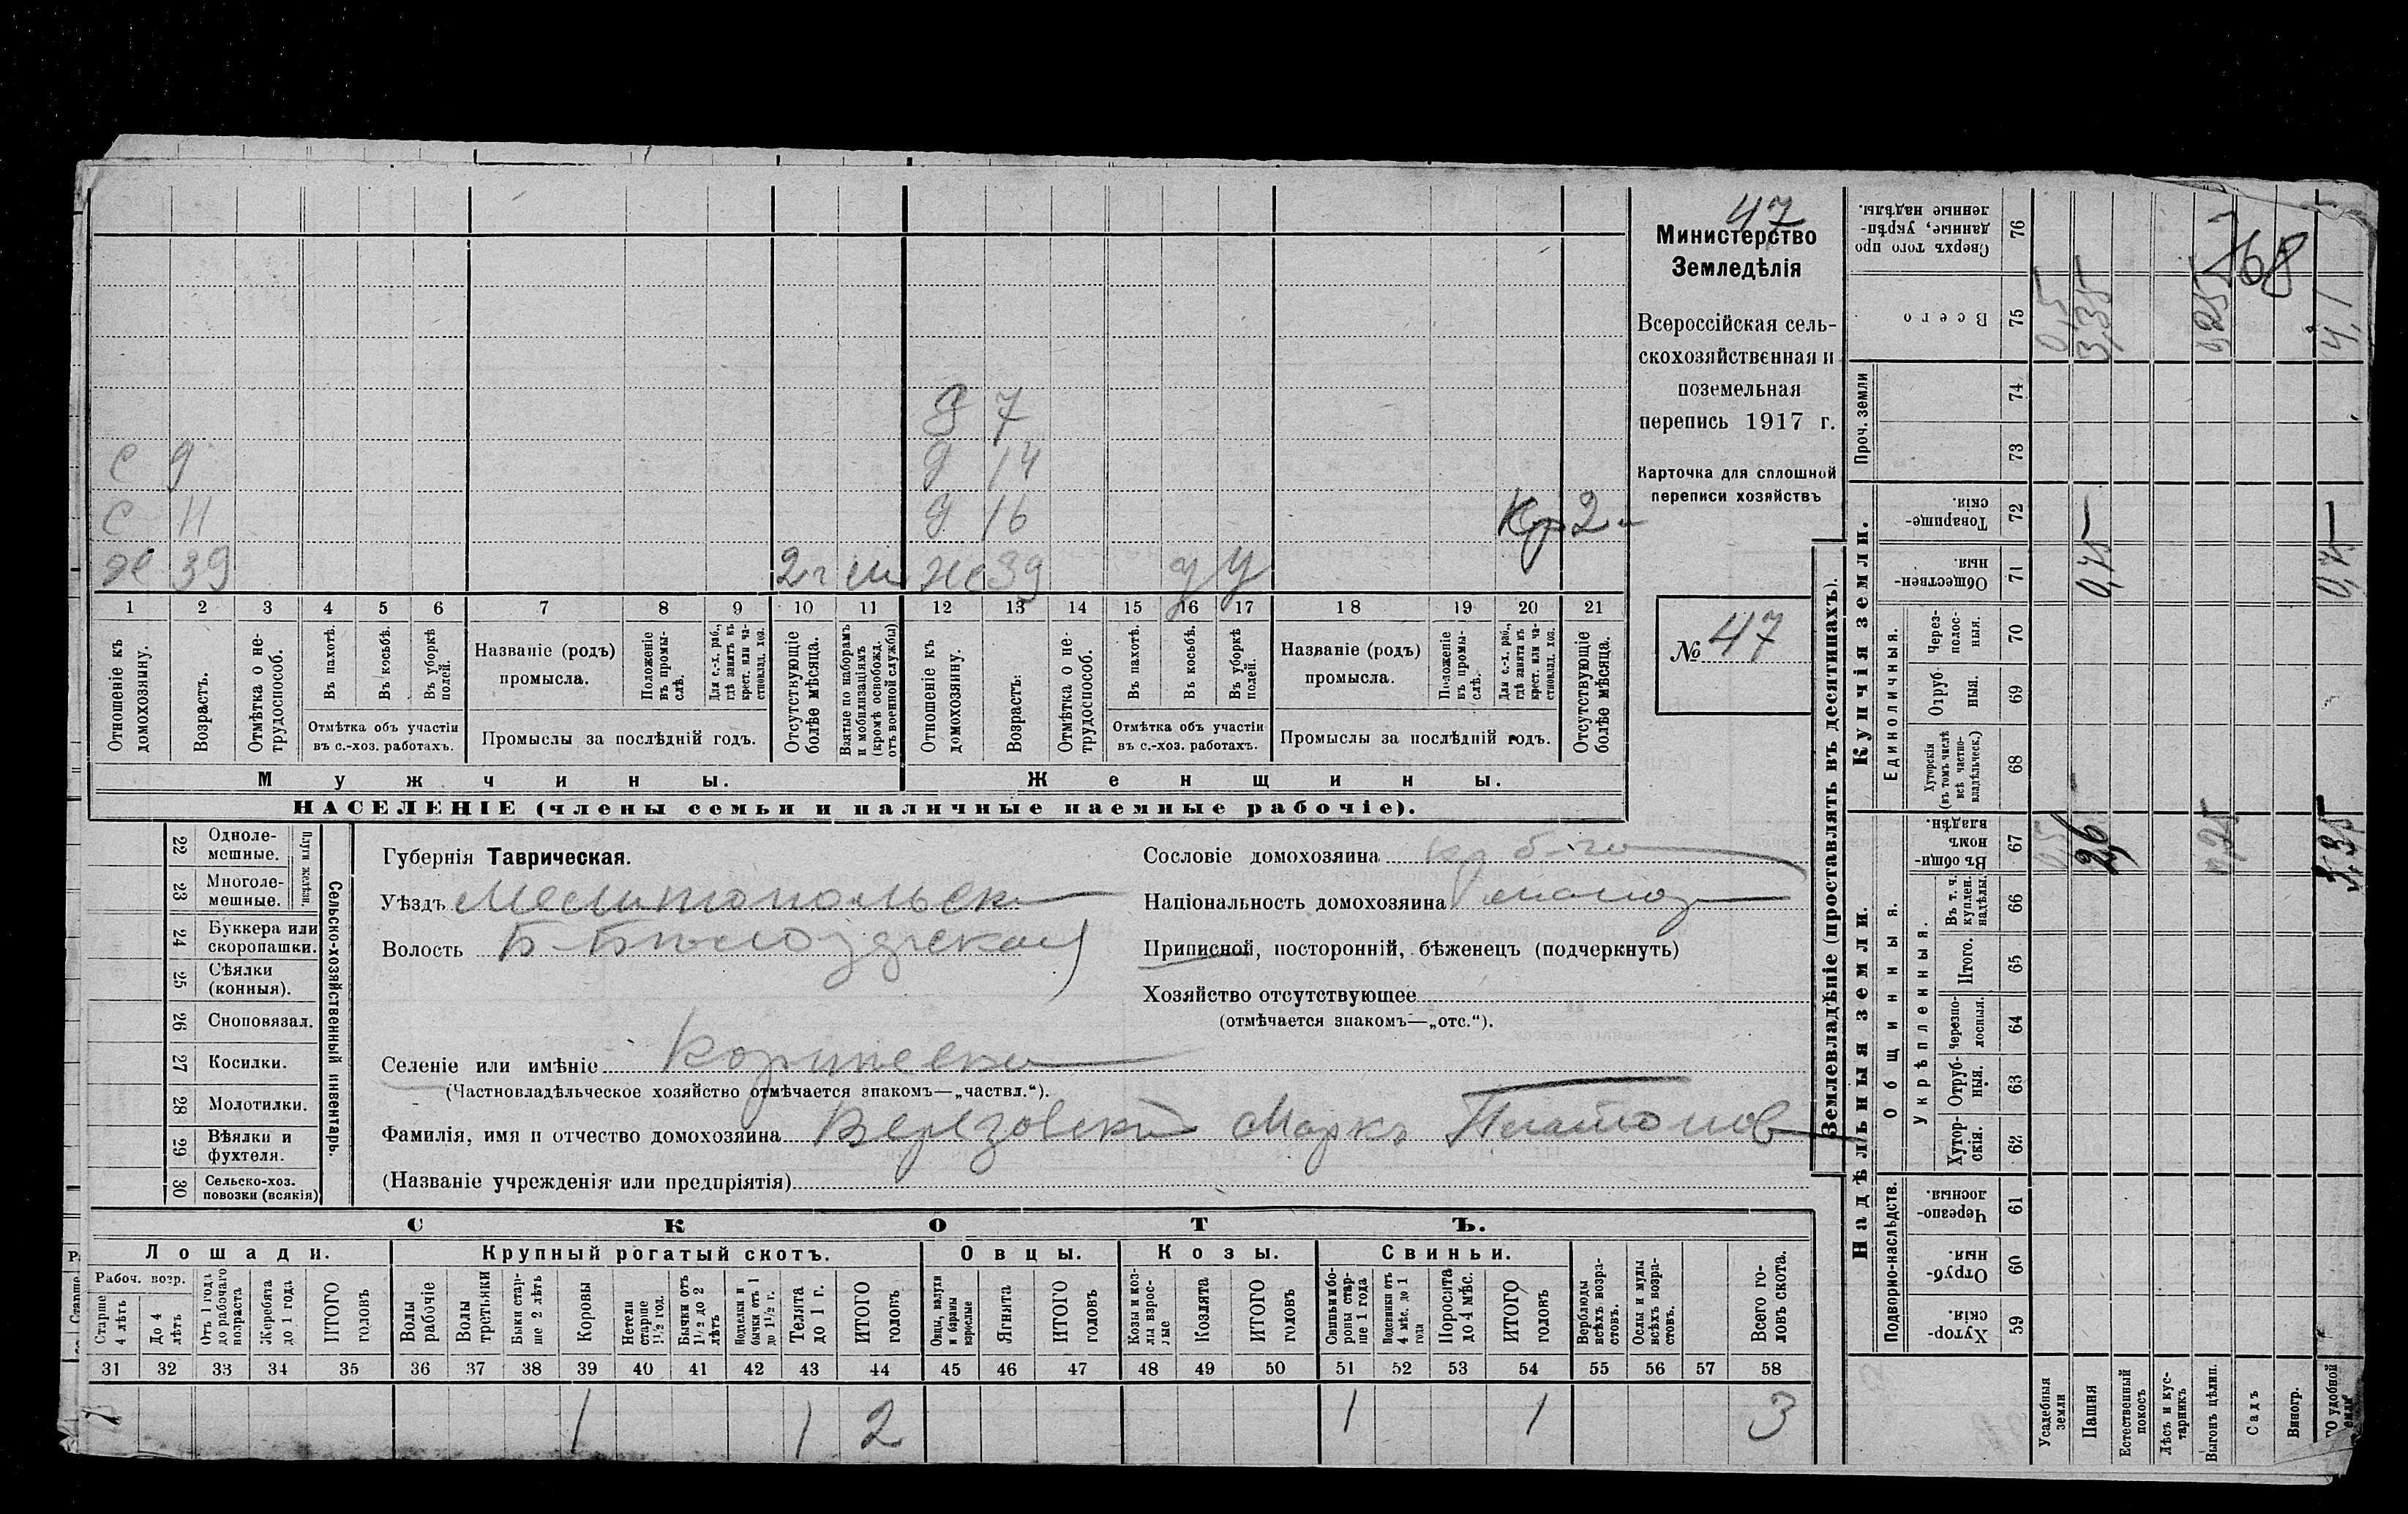 47
Министерство
Земледѣлія
Всероссійская сель-
скохозяйственная и
поземельная
перепись 1917 г.
Карточка для сплошной
переписи хозяйствъ
№ 47
д 7
с 9 д 14
с 11 д 16 Кр 2
ж 39 2 г ж 39 у у
1 2 3 4 5 6 7 8 9 10 11 12 13 14 15 16 17 18 19 20 21
Отношеніе къ домохозяину.
Возрастъ.
Отмѣтка о не-трудоспособ.
Въ пахотѣ.
Въ косьбѣ.
Въ уборкѣ полей.
Отмѣтка объ участіи
въ с.-хоз. работахъ.
Названіе (родъ)
промысла.
Положеніе въ промы-слѣ.
Для с.-х. раб., гдѣ занятъ въ крест. или ча-стновлад. хоз.
Промыслы за послѣдній годъ.
Отсутствующіе болѣе мѣсяца.
Взятые по наборамъ и мобилизаціямъ (кромѣ освобожд. отъ военной службы)
Отношеніе къ домохозяину.
Возрастъ:
Отмѣтка о не-трудоспособ.
Въ пахотѣ.
Въ косьбѣ.
Въ уборкѣ полей.
Отмѣтка объ участіи
въ с.-хоз. работахъ.
Названіе (родъ)
промысла.
Положеніе въ промы-слѣ.
Для с.-х. раб., гдѣ занята въ крест. или ча-стновлад. хоз.
Промыслы за послѣдній годъ.
Отсутствующіе болѣе мѣсяца.
Мужчины.
Женщины.
НАСЕЛЕНІЕ (члены семьи и наличные наемные рабочіе).
22 Одноле-мешные.
23 Многоле-мешные.
Плуги желѣзн.
24 Буккера или скоропашки.
25 Сѣялки (конныя).
26 Сноповязал.
27 Косилки.
28 Молотилки.
29 Вѣялки и фухтеля.
30 Сельско-хоз. повозки (всякія)
Сельско-хозяйственный инвентарь.
Губернія Таврическая.
Уѣздъ Мелитопольск
Волость Б-Бѣлозерская
Селеніе или имѣніе
(Частновладѣльческое хозяйство отмѣчается знакомъ—„частвл.“).
Фамилія, имя и отчество домохозяина Верезовскій Маркъ Платонов
(Названіе учрежденія или предпріятія)
Сословіе домохозяина
Національность домохозяина
Приписной, посторонній, бѣженецъ (подчеркнуть)
Хозяйство отсутствующее
(отмѣчается знакомъ—„отс.“).
СКОТЪ.
Лошади.
Крупный рогатый скотъ.
Овцы.
Козы.
Свиньи.
Рабоч. возр.
Старше 4 лѣтъ
До 4 лѣтъ
Отъ 1 года до рабочаго возраста
Жеребята до 1 года
ИТОГО головъ
Волы рабочіе
Волы третьяки
Быки стар-ше 2 лѣтъ
Коровы
Нетели старше 1½ год.
Бычки отъ 1½ до 2 лѣтъ
Телята до 1 г.
ИТОГО головъ
Ягнята
ИТОГО головъ
Козы и коз-лы взрос-лые
Козлята
ИТОГО головъ
Поросята до 4 мѣс.
ИТОГО головъ
Верблюды всѣхъ возра-стовъ.
Ослы и мулы всѣхъ возра-стовъ.
Всего го-ловъ скота.
31 32 33 34 35 36 37 38 39 40 41 42 43 44 45 46 47 48 49 50 51 52 53 54 55 56 57 58
1 1 2 1 1 3
Землевладѣніе (проставлять въ десятинахъ).
Надѣльныя земли.
Купчія земли.
Проч. земли
Подворно-наслѣдств.
Общинныя.
Укрѣпленныя.
Единоличныя.
Сверхъ того про данные, укрѣп-ленные надѣлы. 76
Всего 75
74
73
Товарище-скія. 72
Обществен-ныя. 71
Через-полос-ныя. 70
Отруб-ныя. 69
Хуторскія (въ томъ числѣ всѣ частно-владѣльческ.) 68
Въ общин-номъ владѣн. 67
Въ т. ч. куплен. надѣлы. 66
Итого. 65
Черезпо-лосныя. 64
Отруб-ныя. 63
Хутор-скія. 62
Черезпо-лосныя. 61
Отруб-ныя. 60
Хутор-скія. 59
Усадебныя земли
Пашня
Естественный покосъ
Лѣсъ и кус-тарникъ
Выгонъ цѣлин.
Садъ
Виногр.
0,5
3,35
68
4,1
2,6
3,35